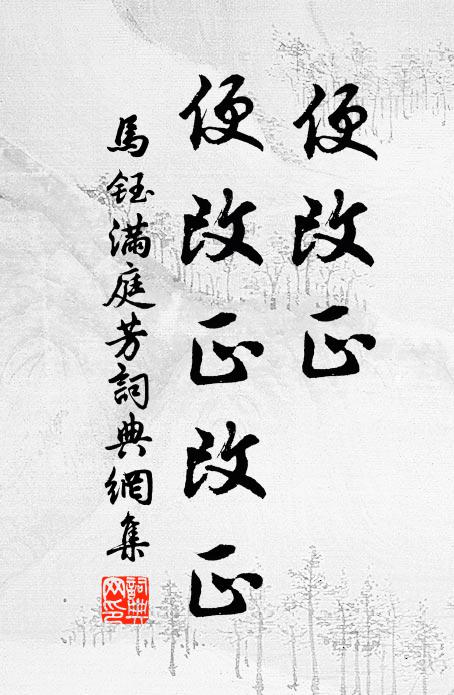 便改正
便改正改正
馬鈺滿庭芳詞典網集
詞典網印